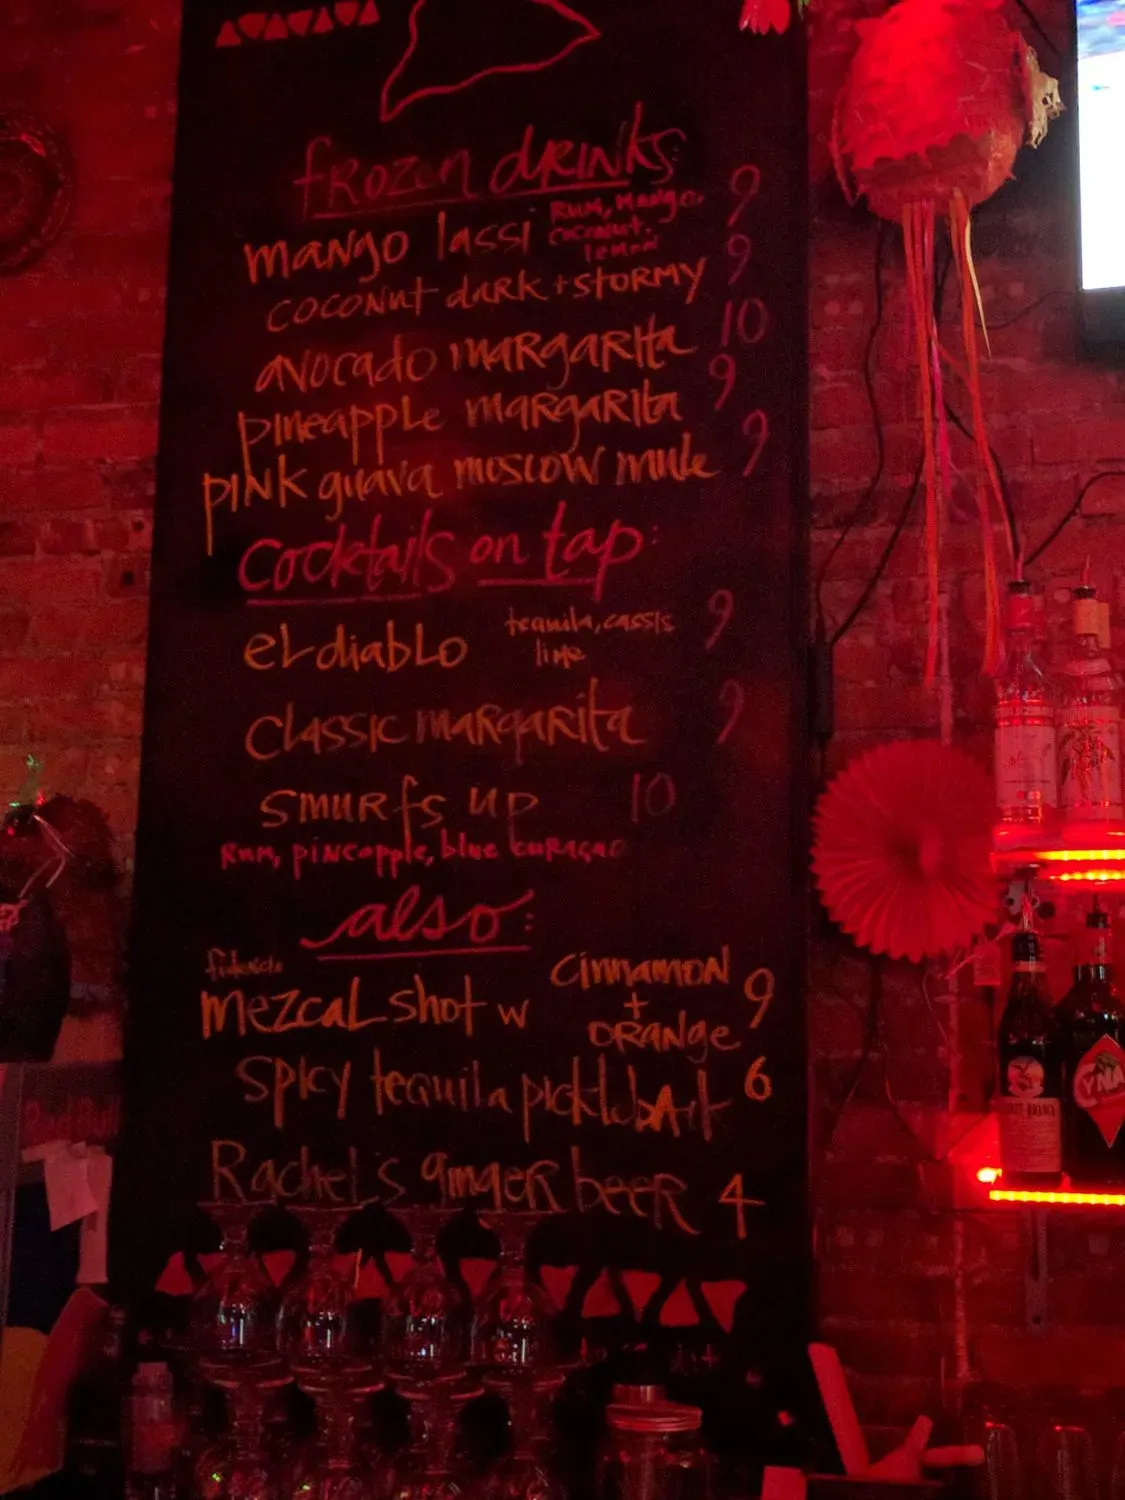 frozen drinks:
mango lassi Rum, Mango, coconut, lemon 9
coconut dark + stormy 9
avocado margarita 10
pineapple margarita 9
pink guava moscow mule 9
Cocktails on tap:
el diablo tequila, cassis lime 9
classic margarita 9
smurfs up 10
Rum, pineapple, blue curaçao
also:
fidencio
mezcal shot w cinnamon + orange 9
spicy tequila pickleback 6
Rachel's ginger beer 4